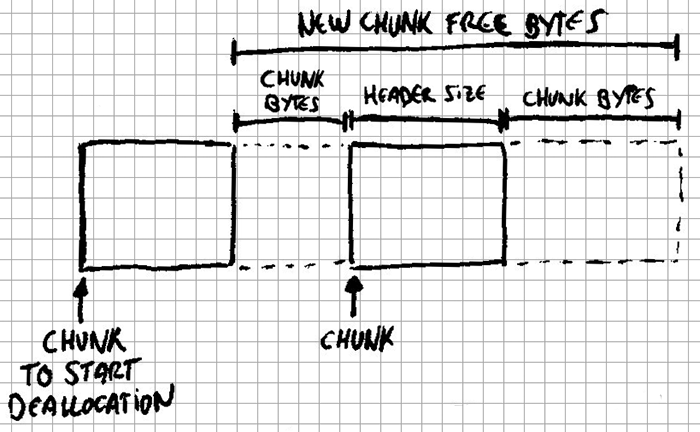 NEW CHUNK FREE BYTES
CHUNK
BYTES
HEADER SIZE
CHUNK BYTES
CHUNK
TO START
DEALLOCATION
CHUNK